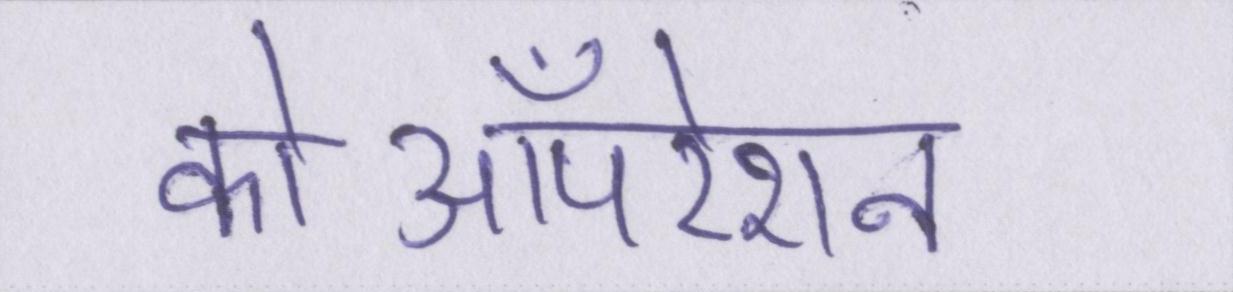 कोआँपरेशन